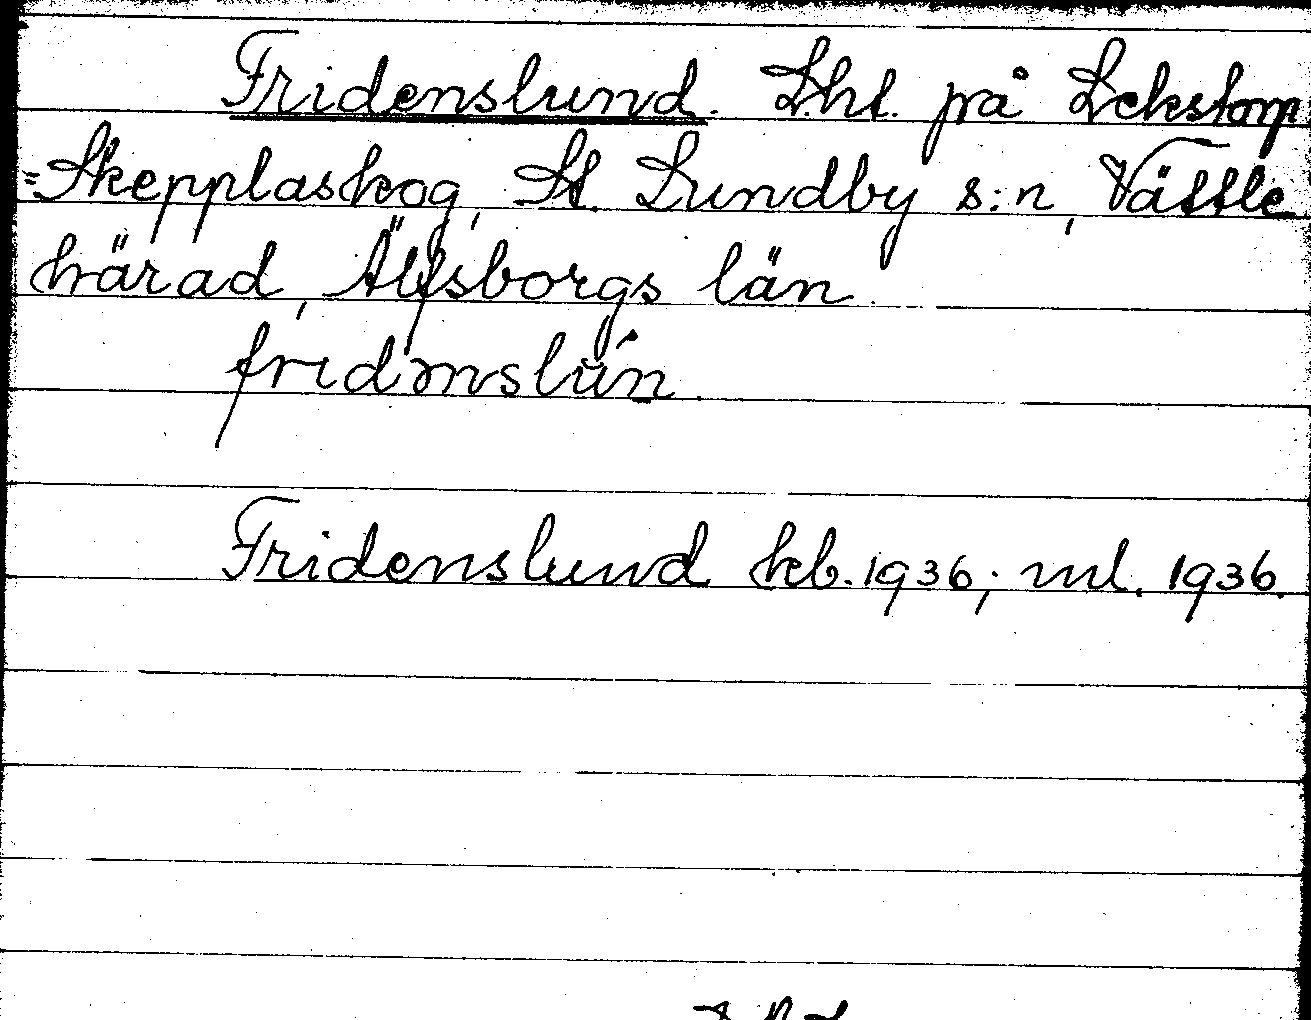 Fridenslund. Lht. på Lekstorp
=Skepplaskog, St. Lundby s:n, Vättle
härad, Älfsborgs län.
Fridenslund kb. 1936; ml. 1936.